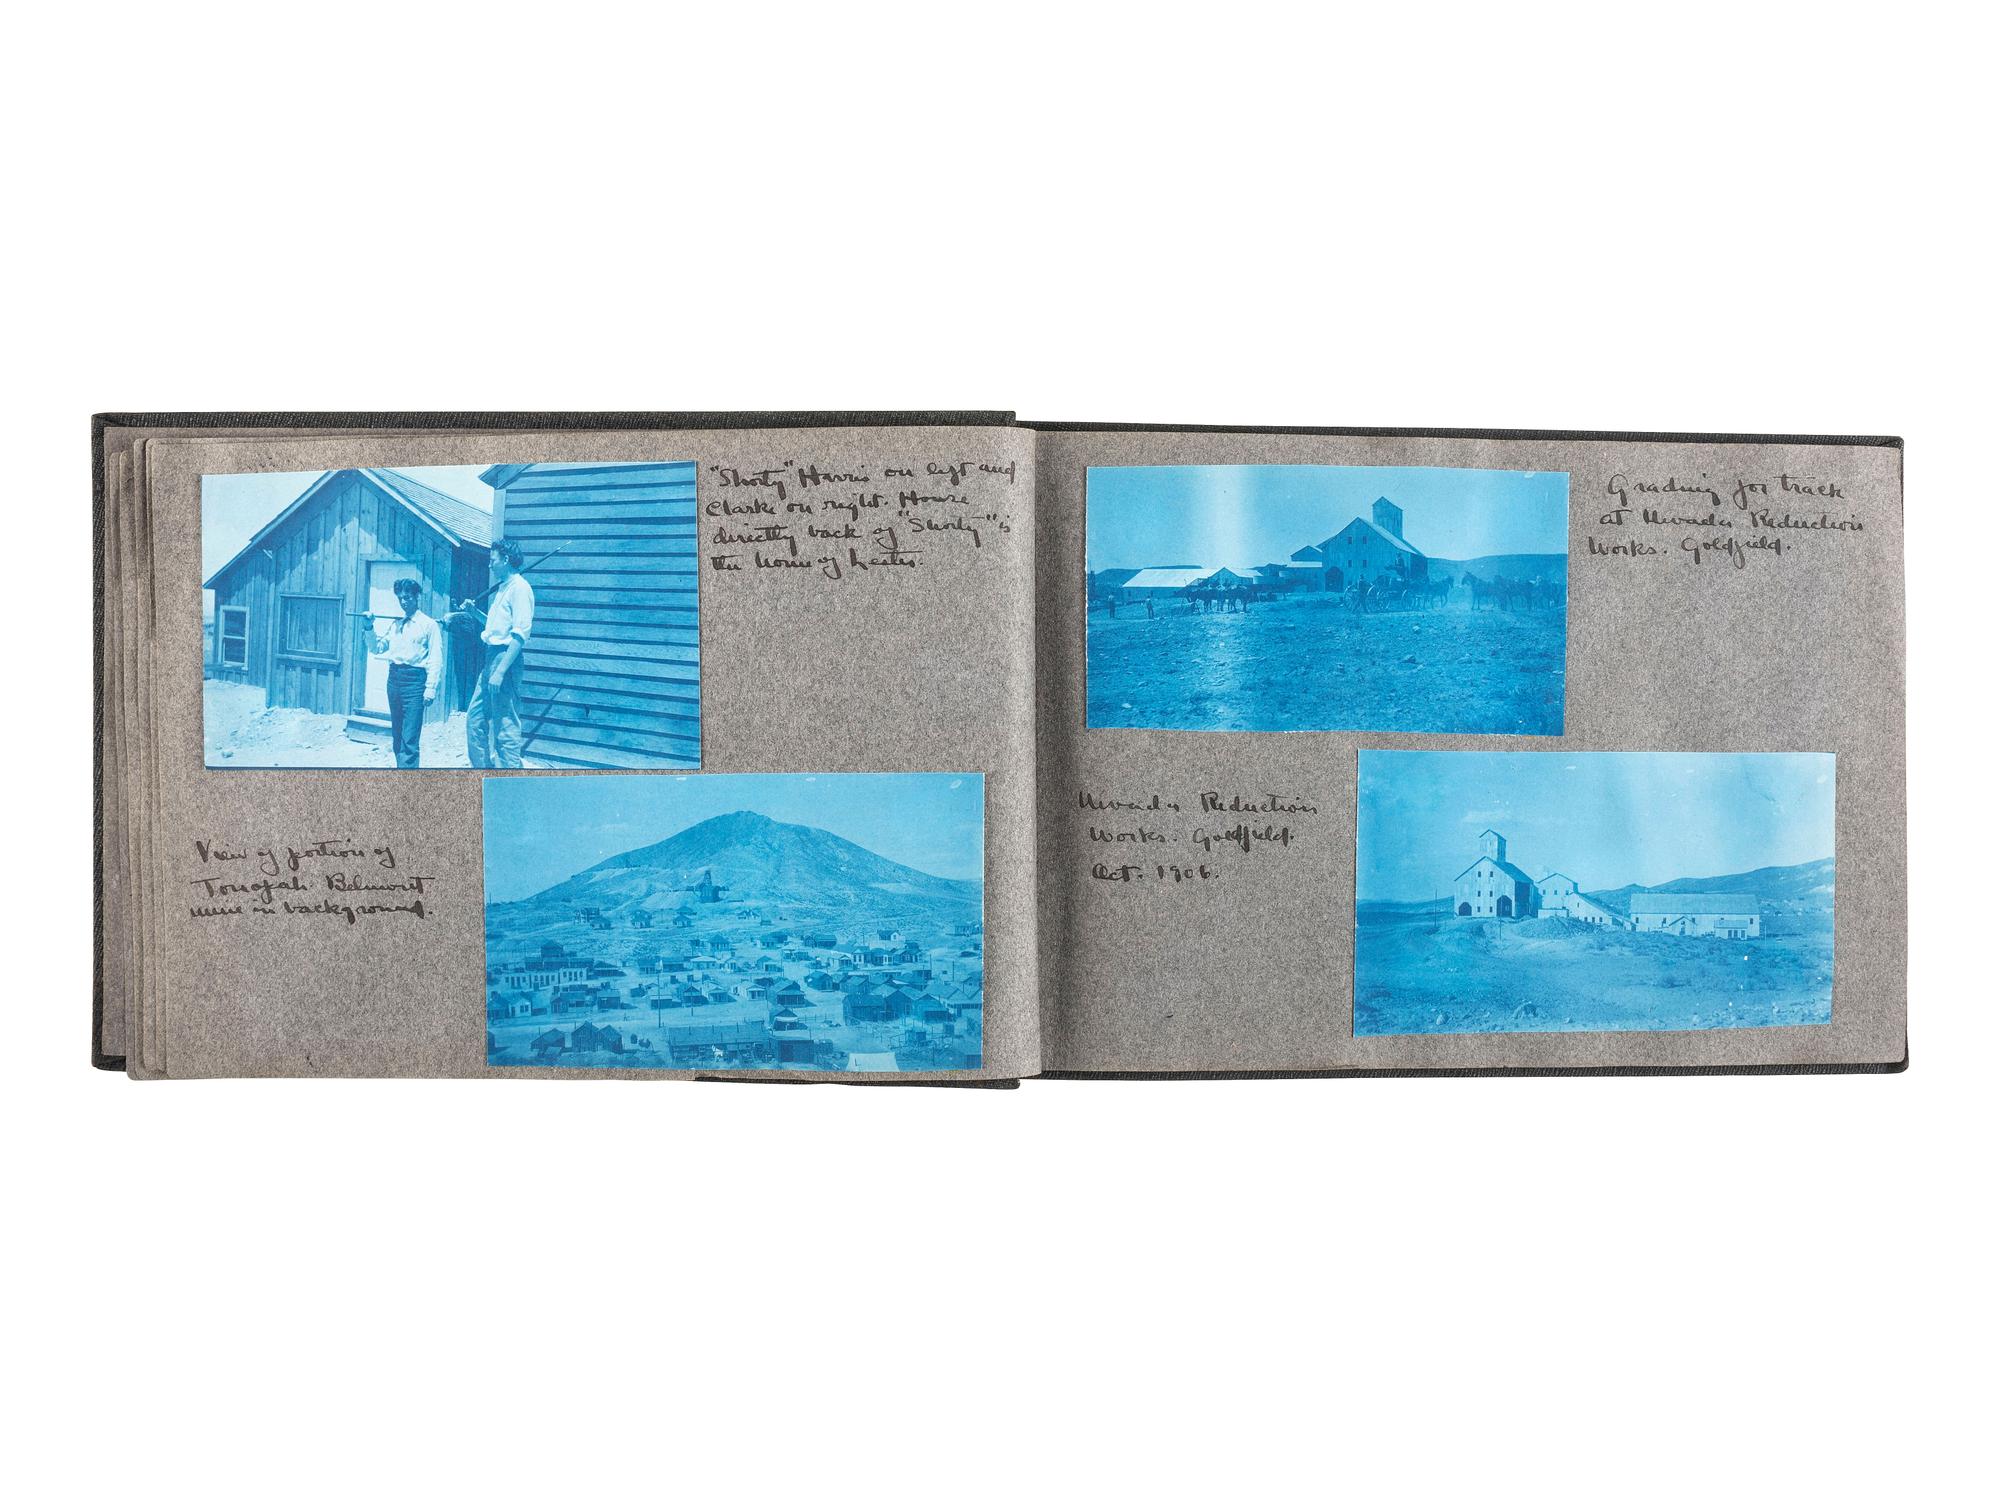 "Shorty" Harris on left and
Clarke on right. House
directly back of "Shorty" is
the home of Lester.
View of portion of
Tonopah. Belmont
mine in background.
Grading for track
at Nevada Reduction
Works. Goldfield.
Nevada Reduction
Works. Goldfield.
Oct. 1906.